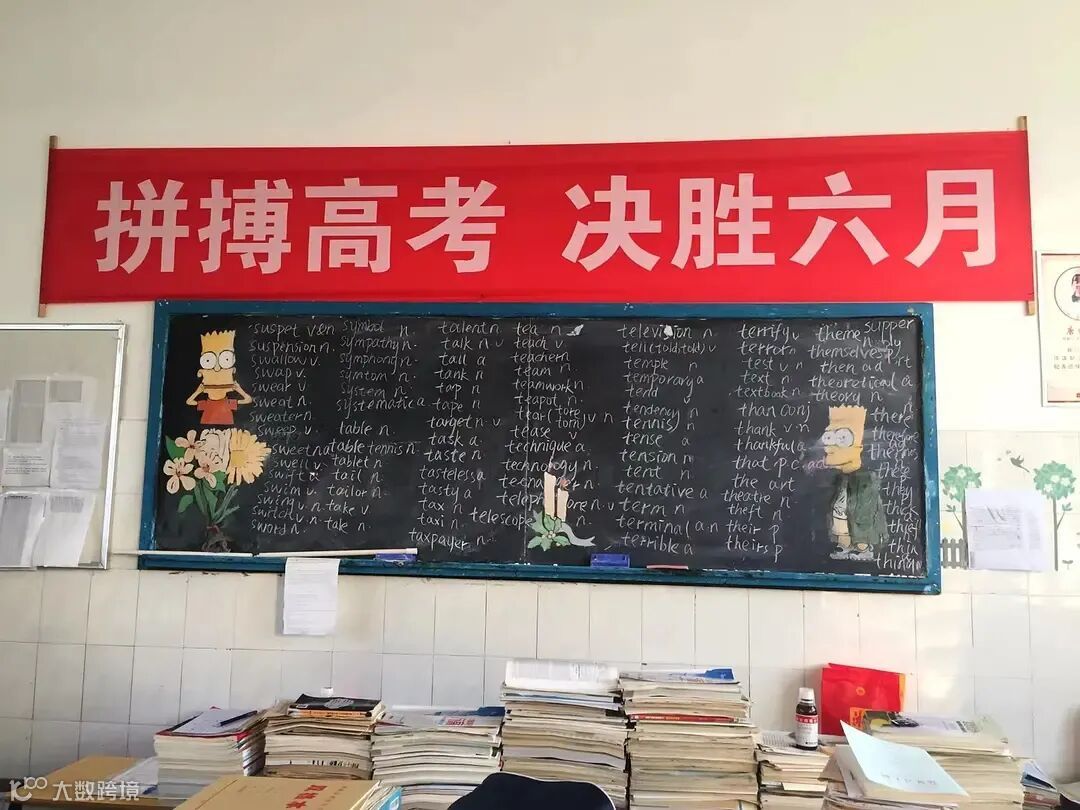 拼搏高考 决胜六月
suspet v.n
suspension n.
swallow v.
swap v.
swear v.
sweat n.
sweater n.
sweep v.
sweet na
swell v.
swift a
swim v.
swim v.
switch v.
sword n.
symbol n.
sympathy n.
symphony n.
symtom n.
system n.
systematic a
table n.
table tennis n.
tablet n
tail n
tailor n.
take v
take n.
talent n.
talk n.v
tall a
tank n
tap n
tape n
target n.v
task a.
taste n
tasteless a
tasty a
tax n
taxi n.
taxpayer n.
tea n
teach v.
teacher n
team n
teamwork n
teapot n.
tear (tore torn) v n
tease v
technique a
technology n.
telescope n.
television n
tell (told, told) v
temple n
temporary a
tend
tendency n
tennis) n
tense a
tension n
tent n
tentative a
term n
terminal a.n
terrible a
terrify v
terror n
test v n
text n
textbook n
than conj
thank v.n
thankful a
that p.c.ad
the art
theatre n.
theft n
their p
theirs p
theme n
themselves p
then ad
theoretical a
theory n
supper
there
大数跨境